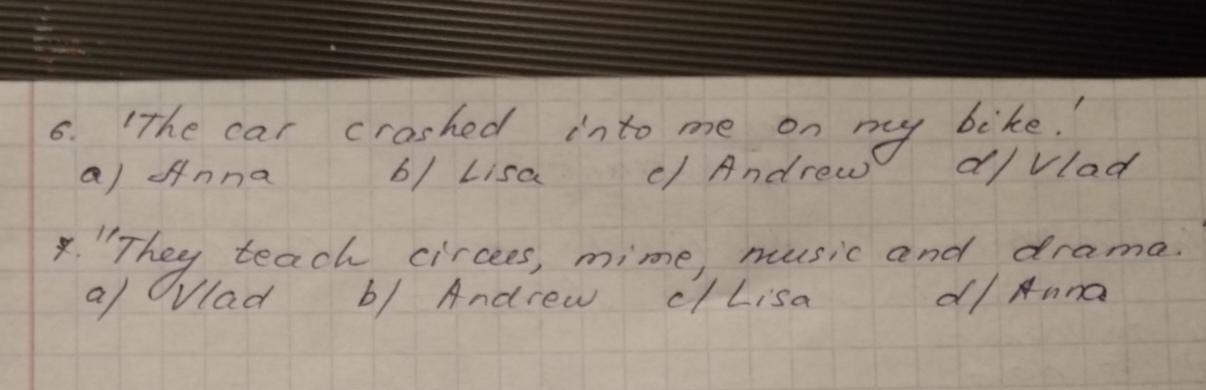 6. 'The car crashed into me on my bike.'
a) Anna b) Lisa c) Andrew d) Vlad
7. "They teach circus, mime, music and drama.
a) Vlad b) Andrew c) Lisa d) Anna